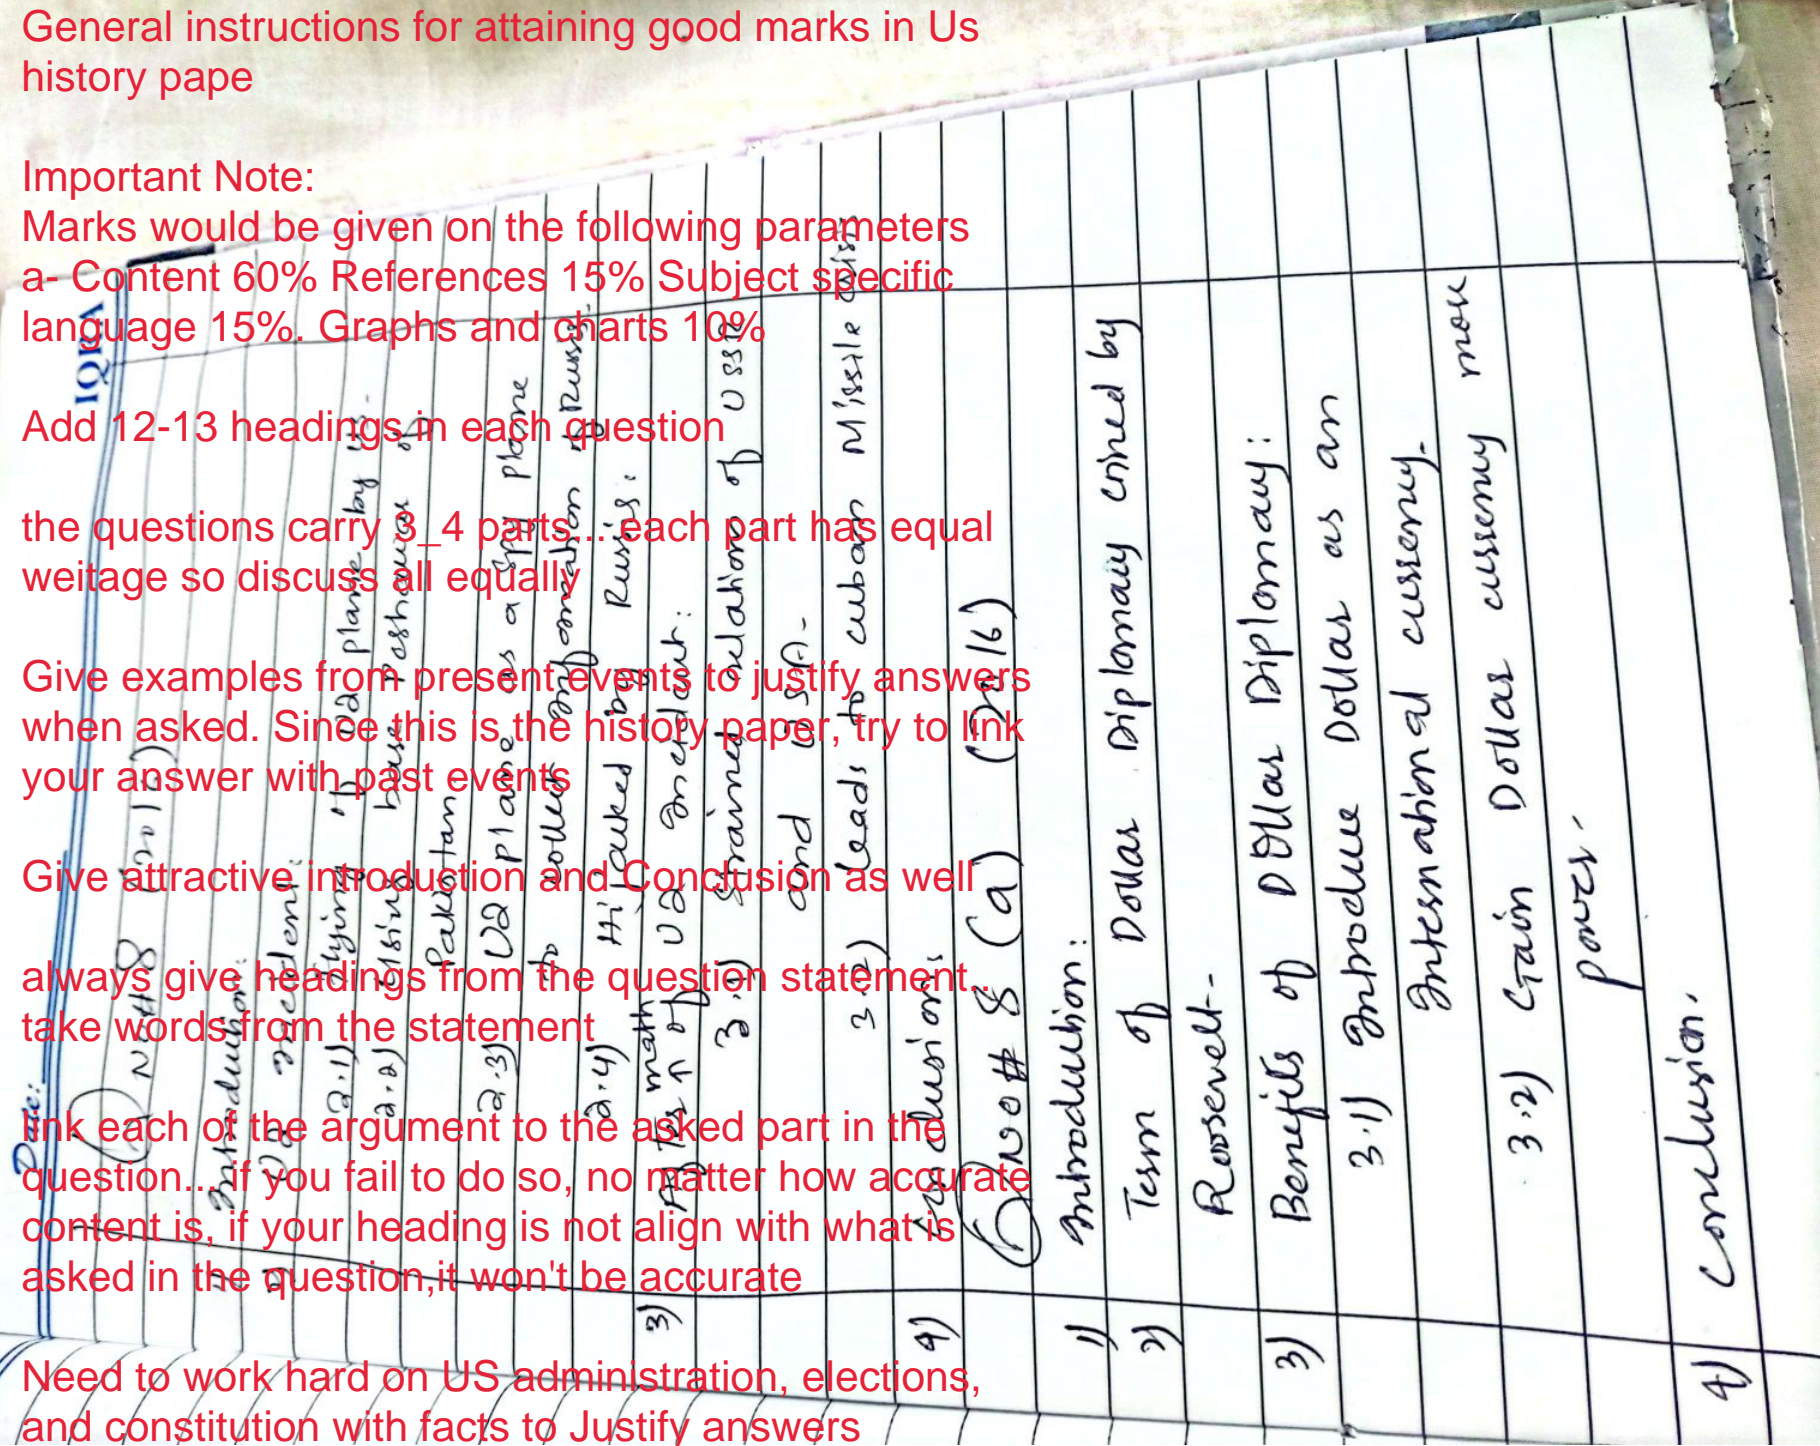 General instructions for attaining good marks in Us
history pape
Important Note:
Marks would be given on the following parameters
a- Content 60% References 15% Subject specific
language 15%. Graphs and charts 10%
Add 12-13 headings in each question
the questions carry 3_4 parts... each part has equal
weitage so discuss all equally
Give examples from present events to justify answers
when asked. Since this is the history paper, try to link
your answer with past events
Give attractive introduction and Conclusion as well
always give headings from the question statement..
take words from the statement
link each of the argument to the asked part in the
question.... if you fail to do so, no matter how accurate
content is, if your heading is not align with what is
asked in the question,it won't be accurate
Need to work hard on US administration, elections,
and constitution with facts to Justify answers
IQRA
Date:
No# 8
Introduction:
U2 incident:
2.1) Flying of U2 plane by US.
2.2) Using base Peshawar of
Pakistan.
2.3) U2 plane as a spy plane
to collect information of Russia.
2.4) Hijacked by Russia.
3) After math of U2 Incident:
3.1) Strained relations of USSR
and USA.
3.2) Leads to cuban Missile crisis
4) Conclusion:
No# 8 (a) (2016)
1) Introduction:
2) Term of Dollar Diplomacy coined by
Roosevelt.
3) Benefits of Dollar Diplomacy:
3.1) Introduce Dollar as an
International currency.
3.2) Gain Dollar currency more
power.
4) Conclusion.